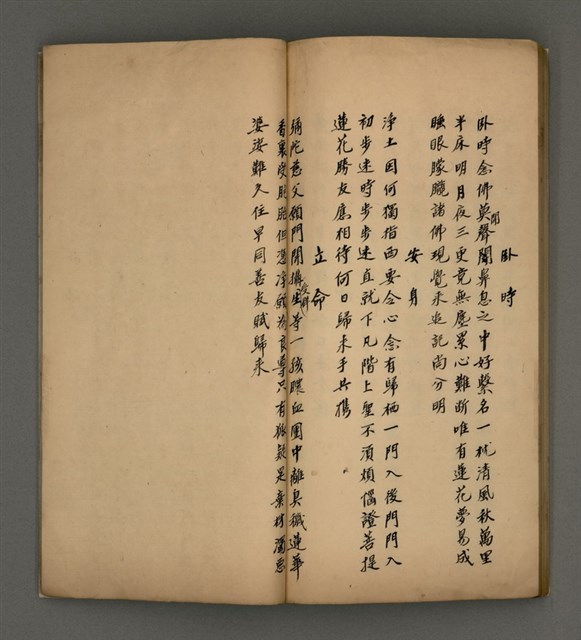 卧時
卧時念佛莫開聲聞鼻息之中好繫名一枕清風秋萬里
半床明月夜三更竟無塵累心難斷唯有蓮花夢易成
睡眼朦朧諸佛現覺來追記尚分明
安身
淨土因何獨指西要令心念有歸栖一門入後門門入
初步迷時步步迷直就下凡階上聖不須煩惱證菩提
蓮花勝友應相待何日歸來手共攜
立命
彌陀慈父願門開攝生等一孩喋血團中離臭穢蓮華
香裏受胎但憑淨願為良導只有狐疑是棄材濁惡
娑婆難久住早同善友賦歸來